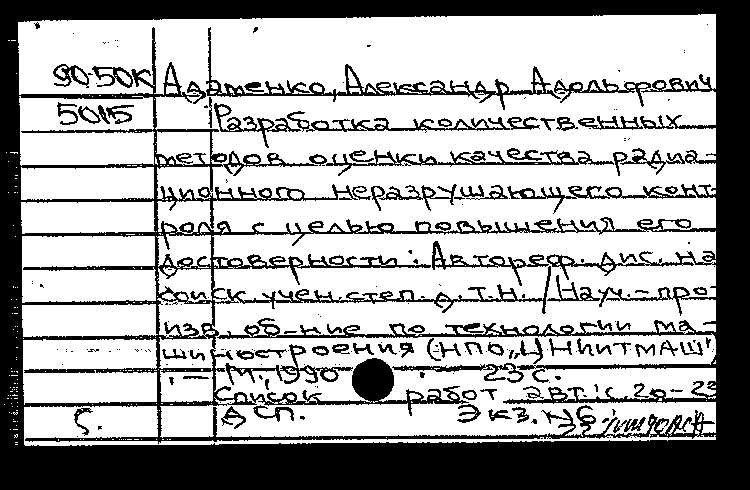 90-50К Адаменко, Александр Адольфович
5015 Разработка количественных
методов оценки качества радиа-
ционного неразрушающего конт-
роля с целью повышения его
достоверности: Автореф. дис. на
соиск. учен. степ. д.т.н. / Науч.-про-
изв. об-ние по технологии ма-
шиностроения (НПО „ЦНИИТМАШ")
.- М., 1990 .- 23 с.
Список работ авт.: с. 20-23
Б. ДСП. Экз. №